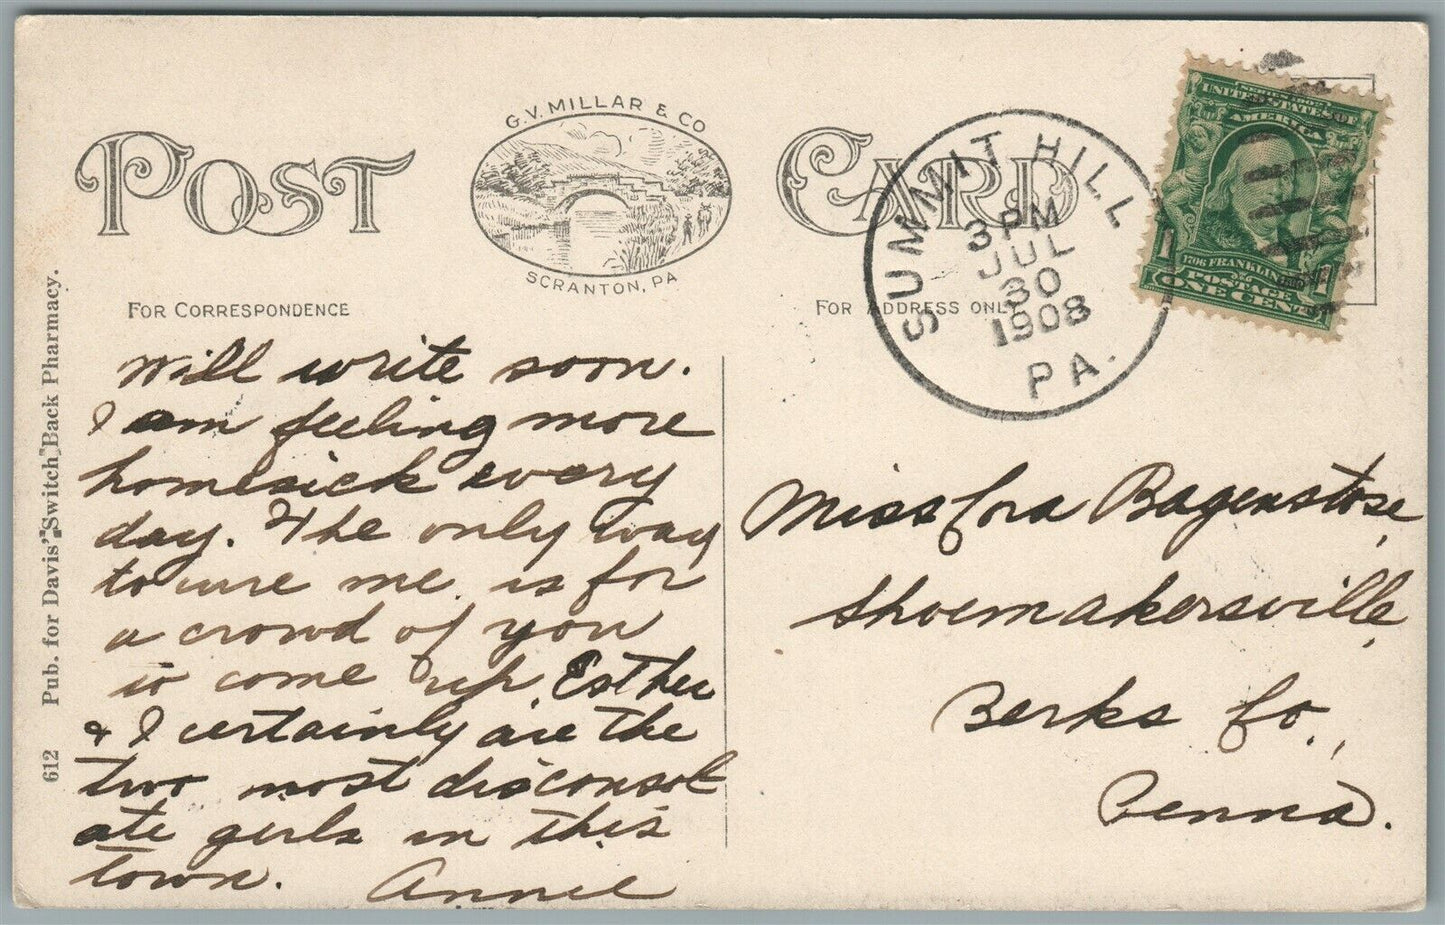 G.V. MILLAR & CO
SCRANTON, PA
POST CARD
FOR CORRESPONDENCE
FOR ADDRESS ONLY
SUMMIT HILL
3 PM
JUL
30
1908
PA.
UNITED STATES OF
AMERICA
1706 FRANKLIN
POSTAGE
1 ONE CENT 1
612 Pub. for Davis' "Switch Back Pharmacy.
Will write soon.
I am feeling more
homesick every
day. The only way
to cure me is for
a crowd of you
to come up. Esther
& I certainly are the
two most disconsol
ate girls in this
town. Annie
Miss Cora Bagenstose,
Shoemakersville,
Berks Co.,
Penna.